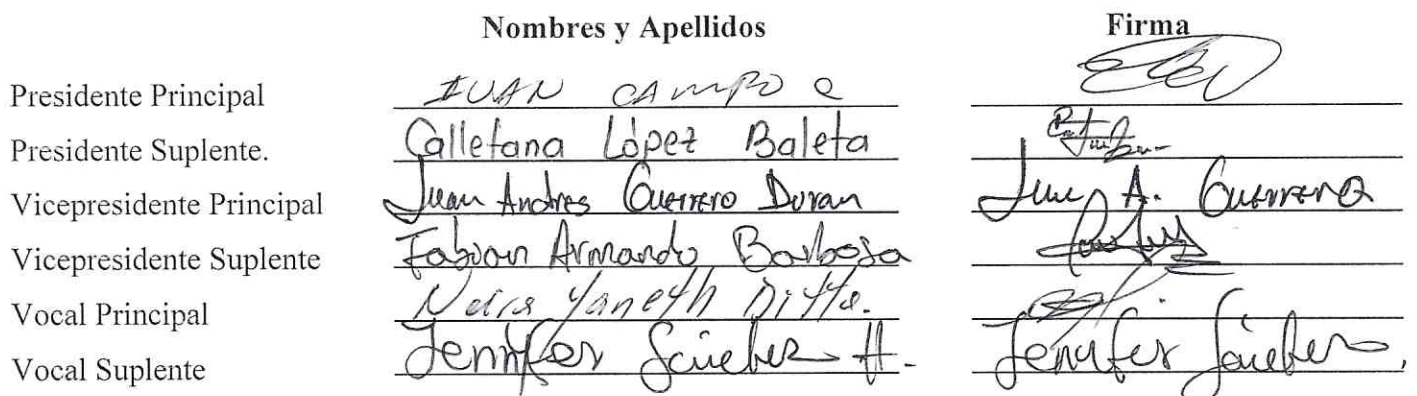 Nombres y Apellidos Firma
Presidente Principal IVAN CAMPO
Presidente Suplente. Calletana López Baleta
Vicepresidente Principal Juan Andres Guerrero Duran Juan A. Guerrero
Vicepresidente Suplente Fabian Armando Barbosa
Vocal Principal Yaneth Ditta.
Vocal Suplente Jennifer Sánchez H. Jennifer Sánchez